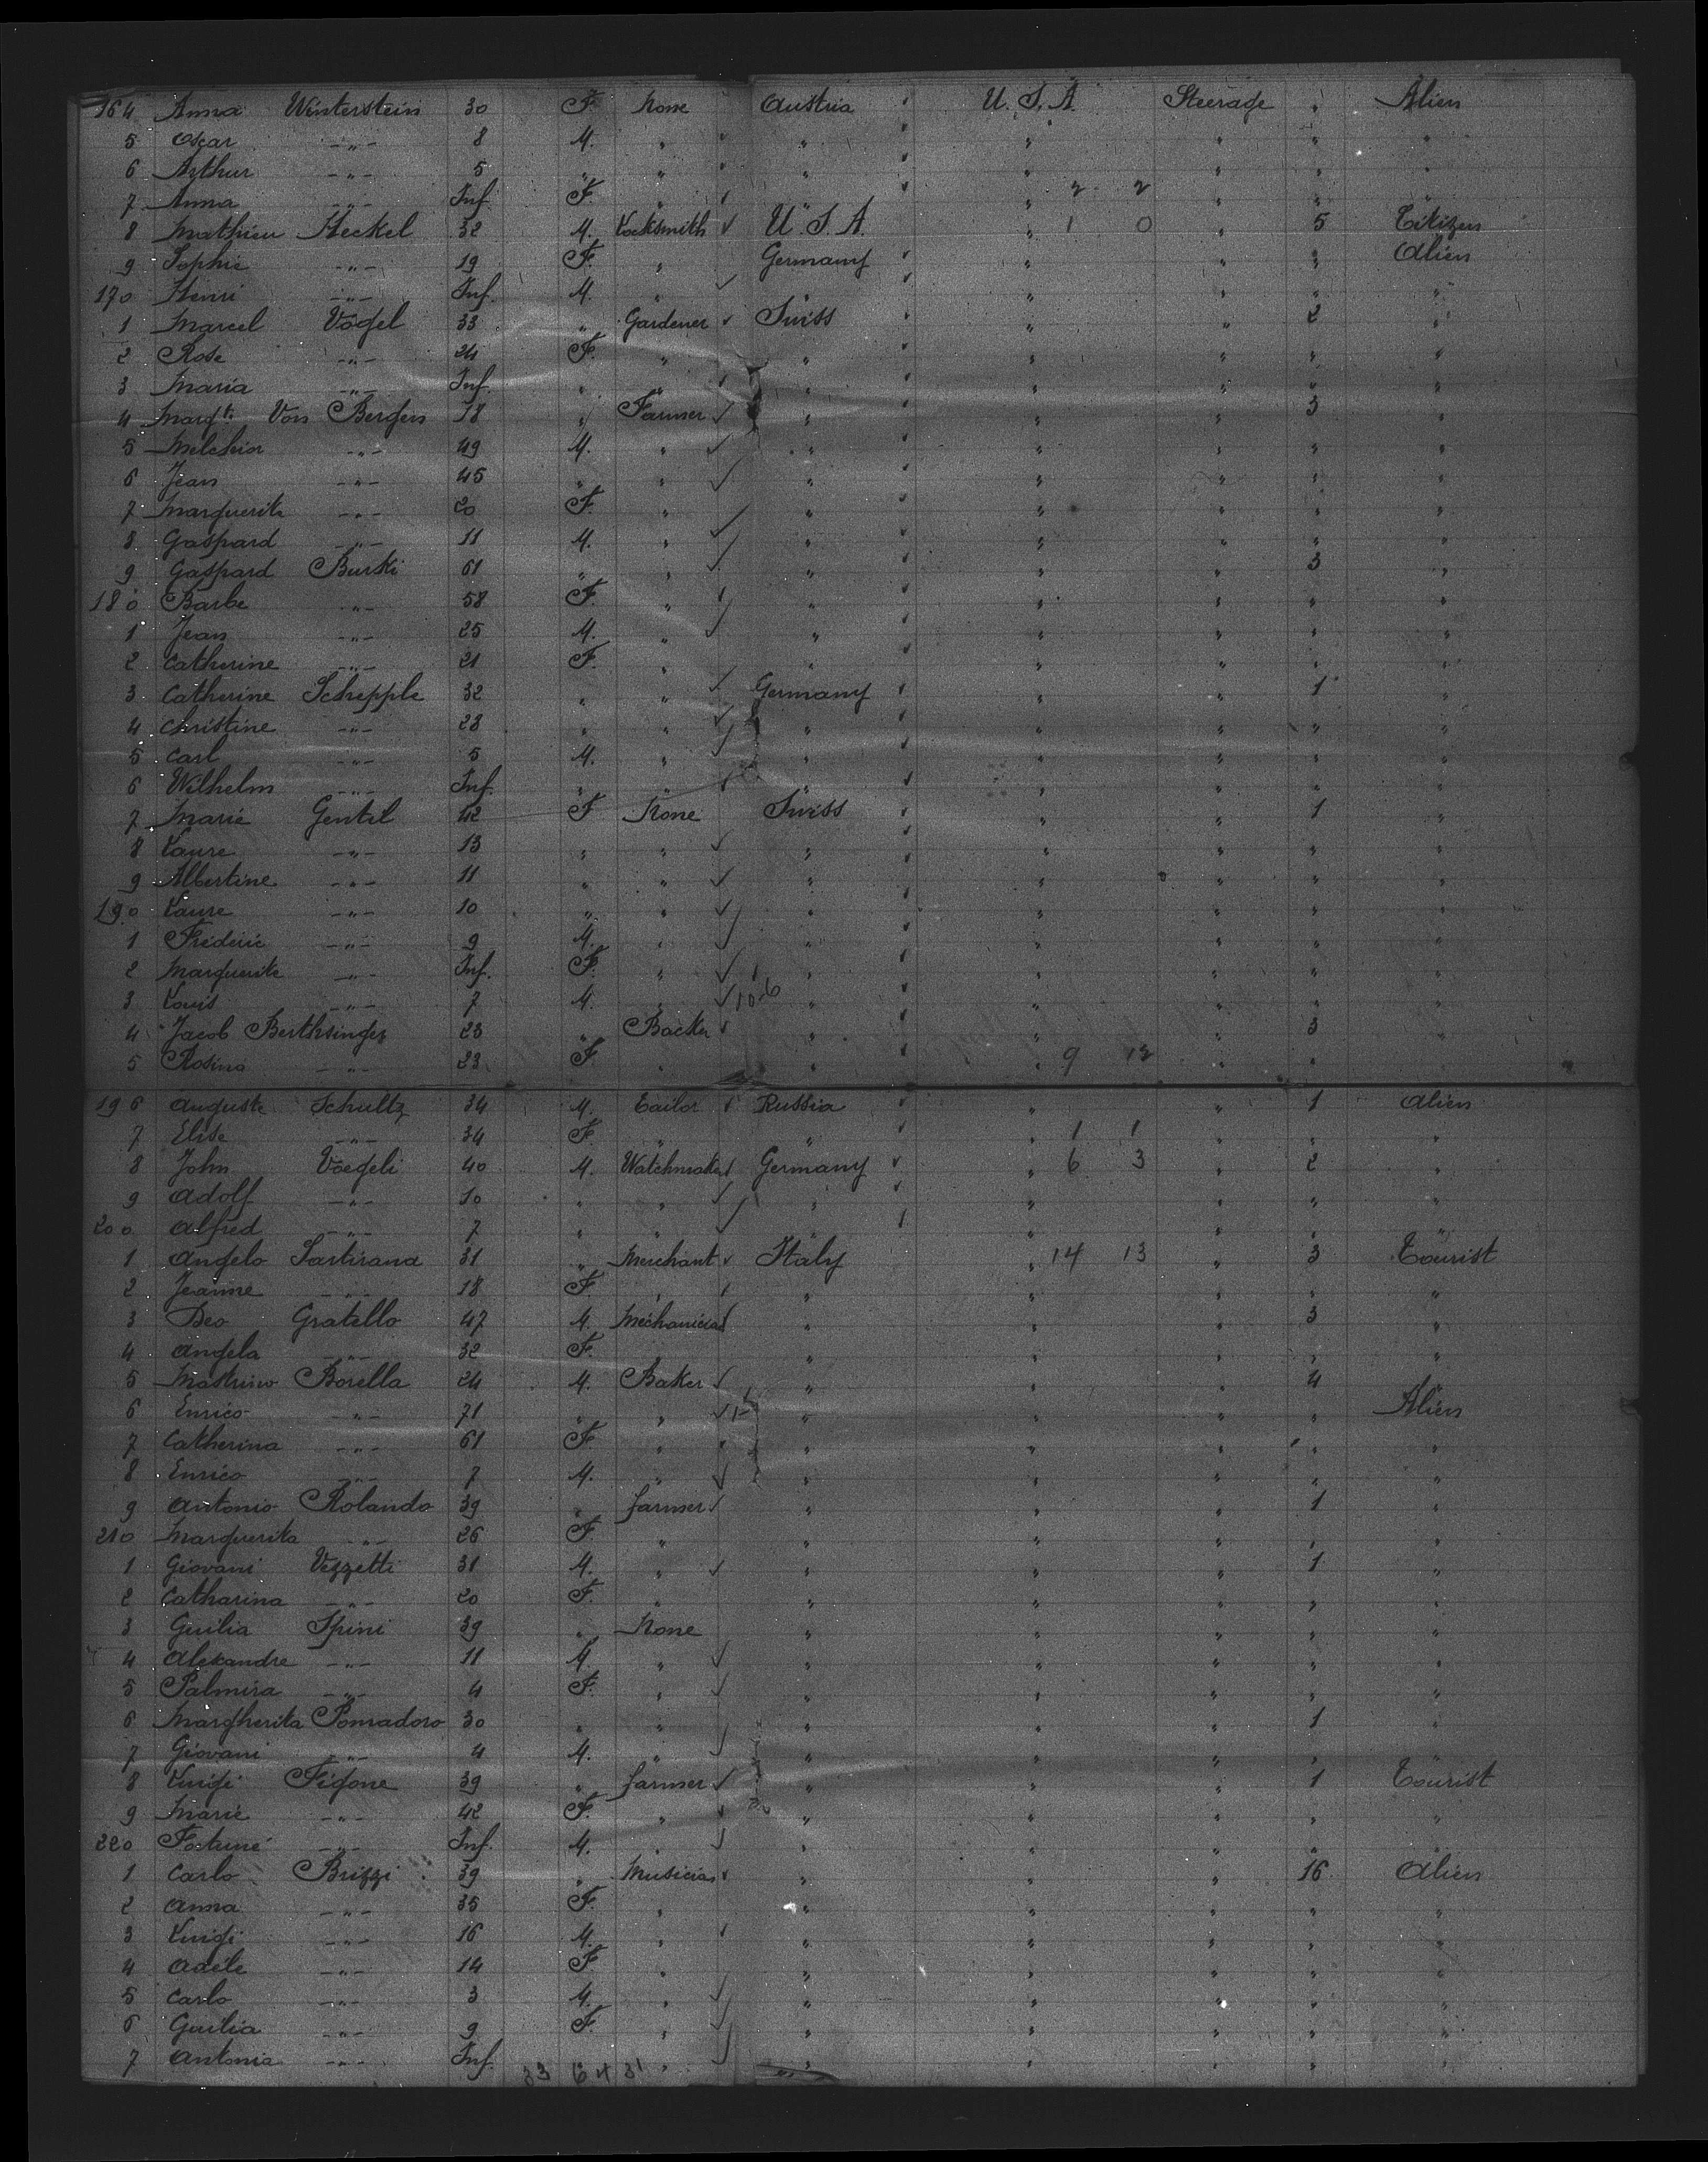 164 Anna Winterstein 30 F. None Austria U.S.A. Steerage " Alien
5 Oscar -"- 8 M. " " " " " "
6 Arthur -"- 5 " " " " " " "
7 Anna -"- Inf. F. " " " 2 2 " " "
8 Mathieu Heckel 32 M. Locksmith U.S.A. " 1 0 " 5 Citizen
9 Sophie -"- 19 F. " Germany " " " Alien
170 Henri -"- Inf. M. " " " " " "
1 Marcel Vogel 33 " Gardener Swiss " " 2 "
2 Rose -"- 24 F. " " " " " "
3 Maria -"- Inf. " " " " " " "
4 Margt. Von Bergen 18 " Farmer " " " 3 "
5 Melchior -"- 49 M. " " " " " "
6 Jean -"- 45 " " " " " " "
7 Marguerite -"- 20 F. " " " " " "
8 Gaspard -"- 11 M. " " " " " "
9 Gaspard Burki 61 " " " " " 3 "
180 Barbe -"- 58 F. " " " " " "
1 Jean -"- 25 M. " " " " " "
2 Catherine -"- 21 F. " " " " " "
3 Catherine Schepple 32 " " Germany " " 1 "
4 Christine -"- 28 " " " " " " "
5 Carl -"- 5 M. " " " " " "
6 Wilhelm -"- Inf. " " " " " " "
7 Marie Gentil 42 F None Swiss " " 1 "
8 Laure -"- 13 " " " " " " "
9 Albertine -"- 11 " " " " " " "
190 Laure -"- 10 " " " " " " "
1 Fréderic -"- 9 M. " " " " " "
2 Marguerite -"- Inf. F. " " " " " "
3 Louis -"- 7 M. " 10-6 " " " " "
4 Jacob Berthsinger 23 " Backer " " " 3 "
5 Rosina -"- 23 F " " " 9 12 " " "
196 Auguste Schultz 34 M. Tailor Russia " " 1 Alien
7 Elise -"- 34 F. " " " 1 1 " " "
8 John Voegeli 40 M. Watchmaker Germany " 6 3 " 2 "
9 Adolf -"- 10 " " " " " " "
200 Alfred -"- 7 " " " " " " "
1 Angelo Sartirana 31 " Merchant Italy " 14 13 " 3 Tourist
2 Jeanne -"- 18 F. " " " " " "
3 Deo Gratello 47 M. Mechanician " " " 3 "
4 Angela -"- 32 F. " " " " "
5 Borella 24 M. Baker " " " 4 "
6 Enrico -"- 71 " " " " " " Alien
7 Catherina -"- 61 F " " " " " "
8 Enrico -"- 7 M. " " " " " "
9 Antonio Rolando 39 " farmer " " " 1 "
210 Marguerita -"- 26 F. " " " " " "
1 Giovani Vezzetti 31 M. " " " " 1 "
2 Catharina -"- 20 F. " " " " " "
3 Guilia Spini 39 " None " " " " "
4 Alexandre -"- 11 M. " " " " " "
5 Palmira -"- 4 F. " " " " " "
6 Margherita Pomadoro 30 " " " " " 1 "
7 Giovani -"- 4 M. " " " " " "
8 Luigi Figone 39 " farmer " " " 1 Tourist
9 Marie -"- 42 F. " " " " " "
220 Fortuné -"- Inf. M. " " " " " "
1 Carlo Brizzi 39 " Musician " " " 16 Alien
2 Anna -"- 35 F. " " " " " "
3 Luigi -"- 16 M. " " " " " "
4 Adéle -"- 14 F " " " " " "
5 Carlo -"- 3 M. " " " " " "
6 Guilia -"- 9 F. " " " " " "
7 Antonia -"- Inf. " " " " " "